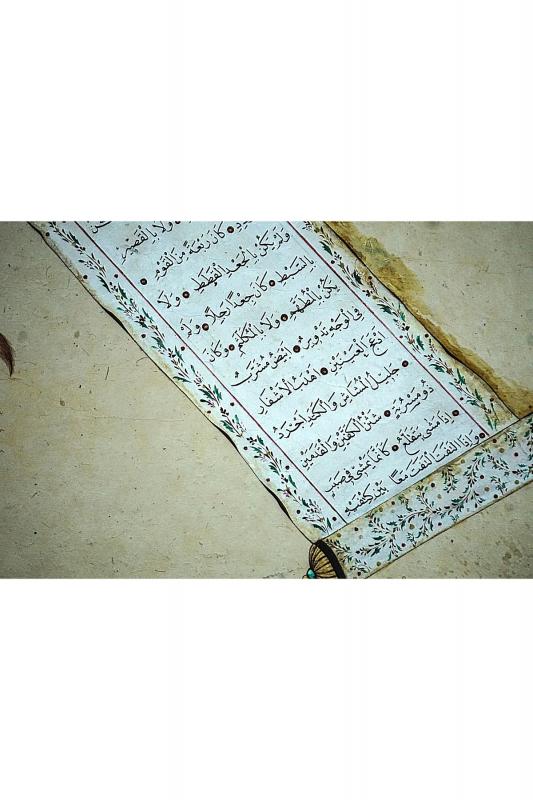 وَلَا بِالْقَصِيرِ
كَانَ رَبْعَةً مِنَ الْقَوْمِ
وَلَمْ يَكُنْ بِالْجَعْدِ الْقَطَطِ وَلَا
بِالسَّبْطِ كَانَ جَعْدًا رَجِلًا وَلَمْ
يَكُنْ بِالْمُطَهَّمِ وَلَا بِالْمُكَلْثَمِ وَكَانَ
فِي الْوَجْهِ تَدْوِيرٌ اَبْيَضُ مُشْرَبٌ
اَدْعَجُ الْعَيْنَيْنِ اَهْدَبُ الْاَشْفَارِ
جَلِيلُ الْمُشَاشِ وَالْكَتَدِ اَجْرَدُ
ذُو مَسْرُبَةٍ شَثْنُ الْكَفَّيْنِ وَالْقَدَمَيْنِ
اِذَا مَشٰى تَقَلَّعَ كَاَنَّمَا يَمْشِي فِي صَبَبٍ
وَاِذَا الْتَفَتَ الْتَفَتَ مَعًا بَيْنَ كَتِفَيْهِ